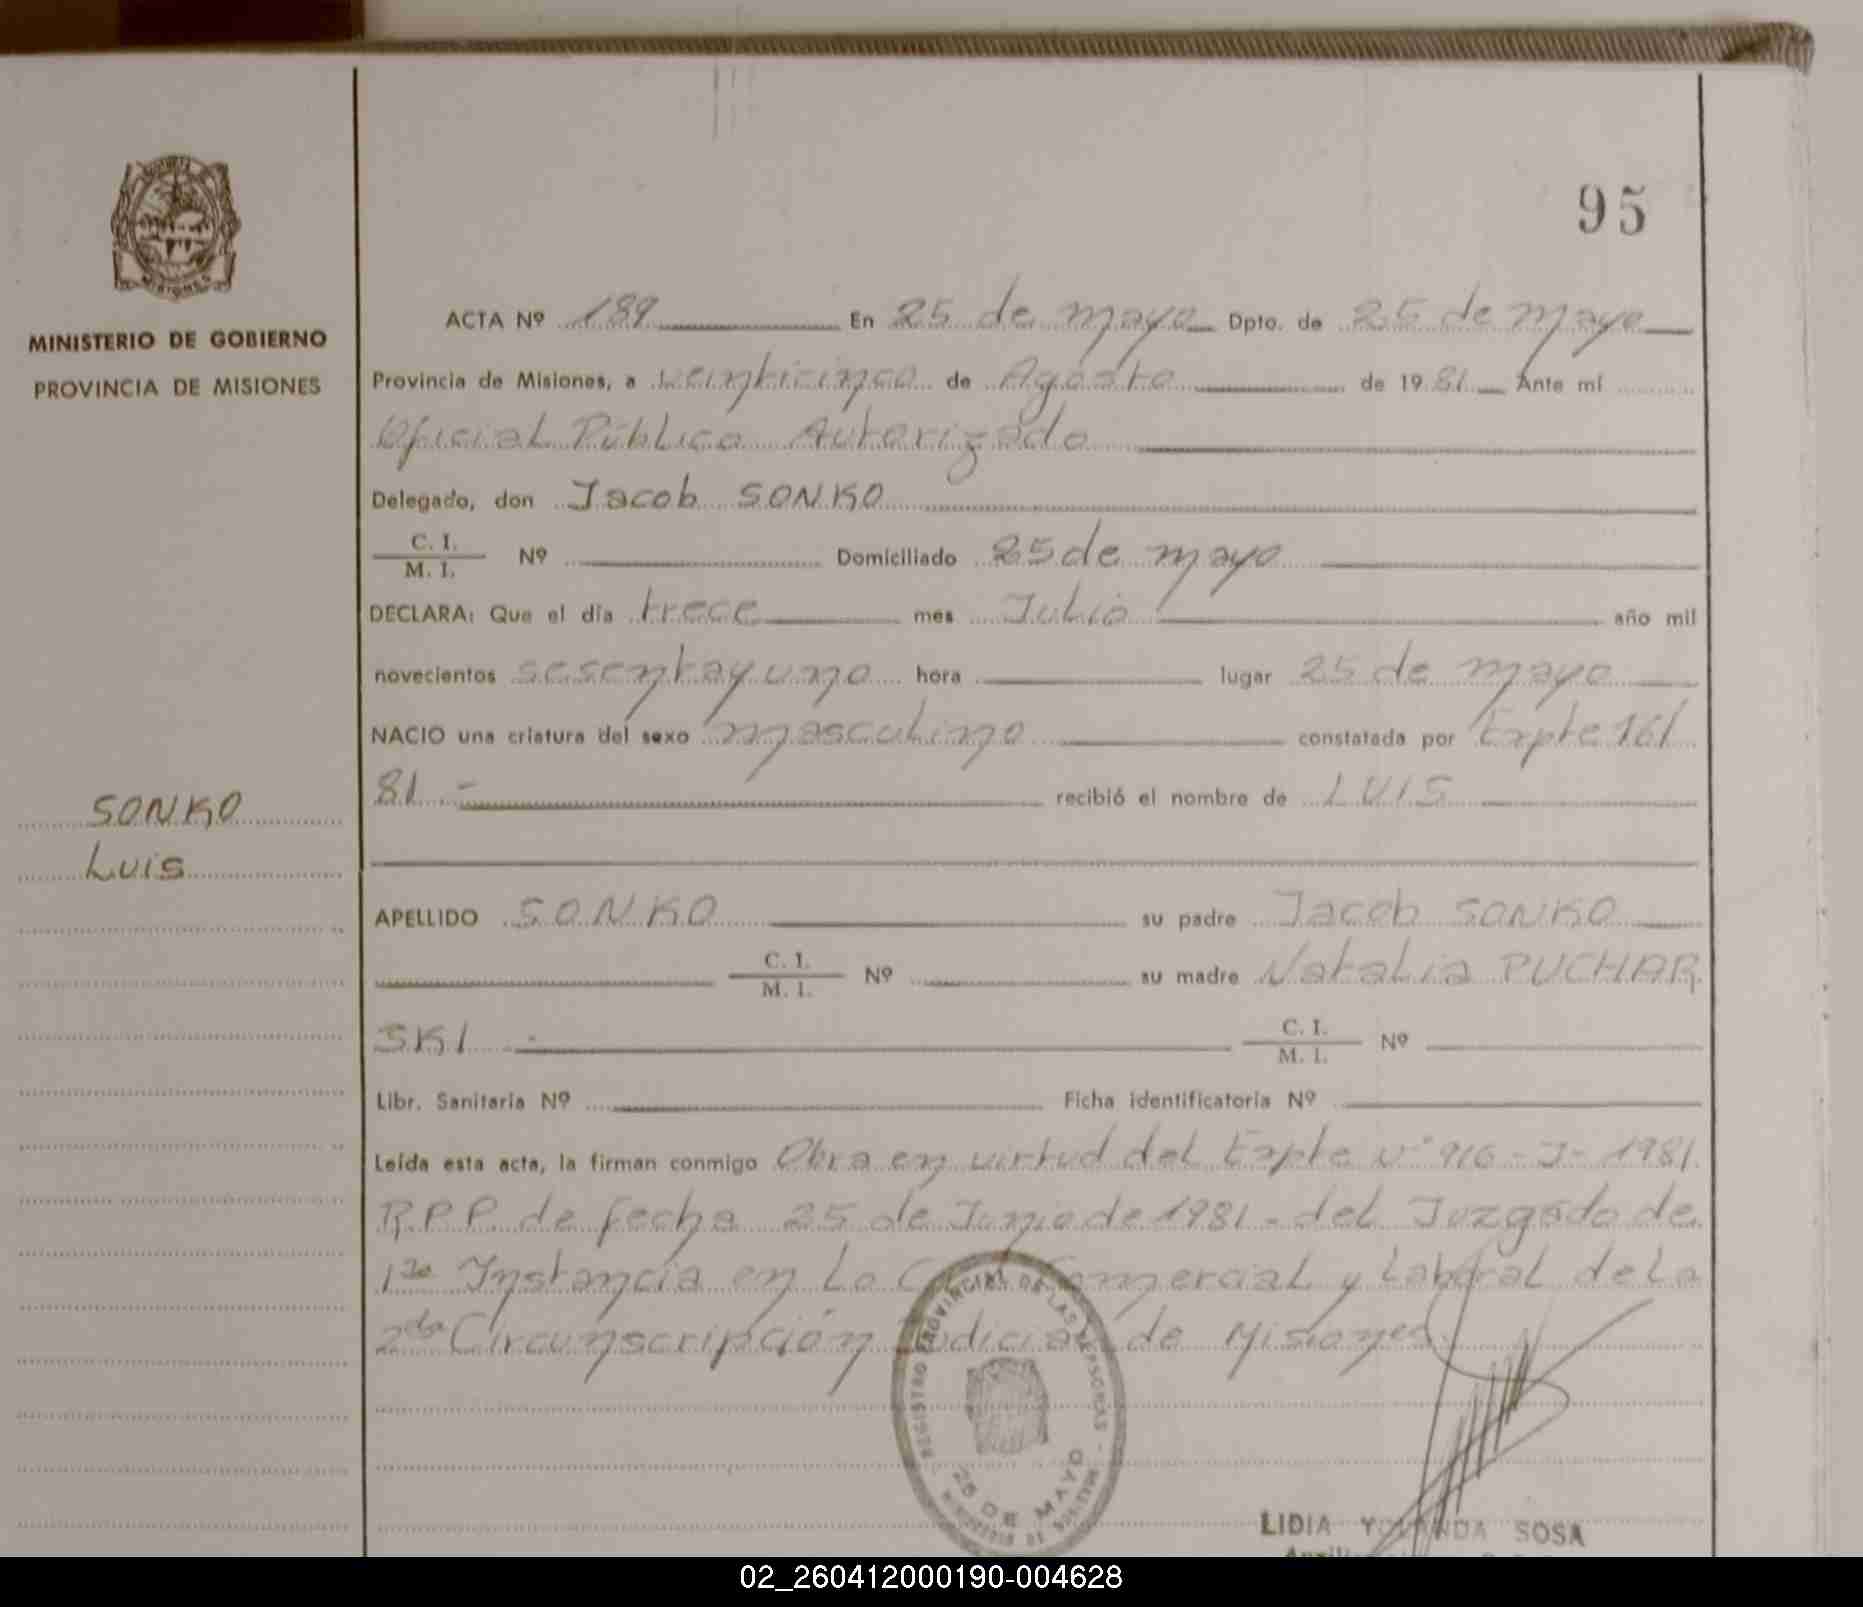 95
MINISTERIO DE GOBIERNO
PROVINCIA DE MISIONES
SONKO
Luis
ACTA Nº 189 En 25 de mayo Dpto. de 25 de mayo
Provincia de Misiones, a veinticinco de Agosto de 1981 Ante mí
Oficial Público Autorizado
Delegado, don Jacob SONKO
C. I.
M. I. Nº Domiciliado 25 de mayo
DECLARA: Que el día trece mes Julio año mil
novecientos sesentayuno hora lugar 25 de mayo
NACIO una criatura del sexo masculino constatada por Expte 161
81 - recibió el nombre de LUIS
APELLIDO SONKO su padre Jacob SONKO
C. I.
M. I. Nº su madre Natalia PUCHAR
SKI - C. I.
M. I. Nº
Libr. Sanitaria Nº Ficha identificatoria Nº
Leída esta acta, la firman conmigo Obra en virtud del Expte Nº 916 - J - 1981.
R.P.P. de fecha 25 de Junio de 1981 - del Juzgado de
1ra Instancia en Lo Comercial y Laboral de La
2da Circunscripción Judicial de Misiones.
REGISTRO PROVINCIAL DE LAS PERSONAS -
25 DE MAYO
LIDIA YOLANDA SOSA
02_260412000190-004628